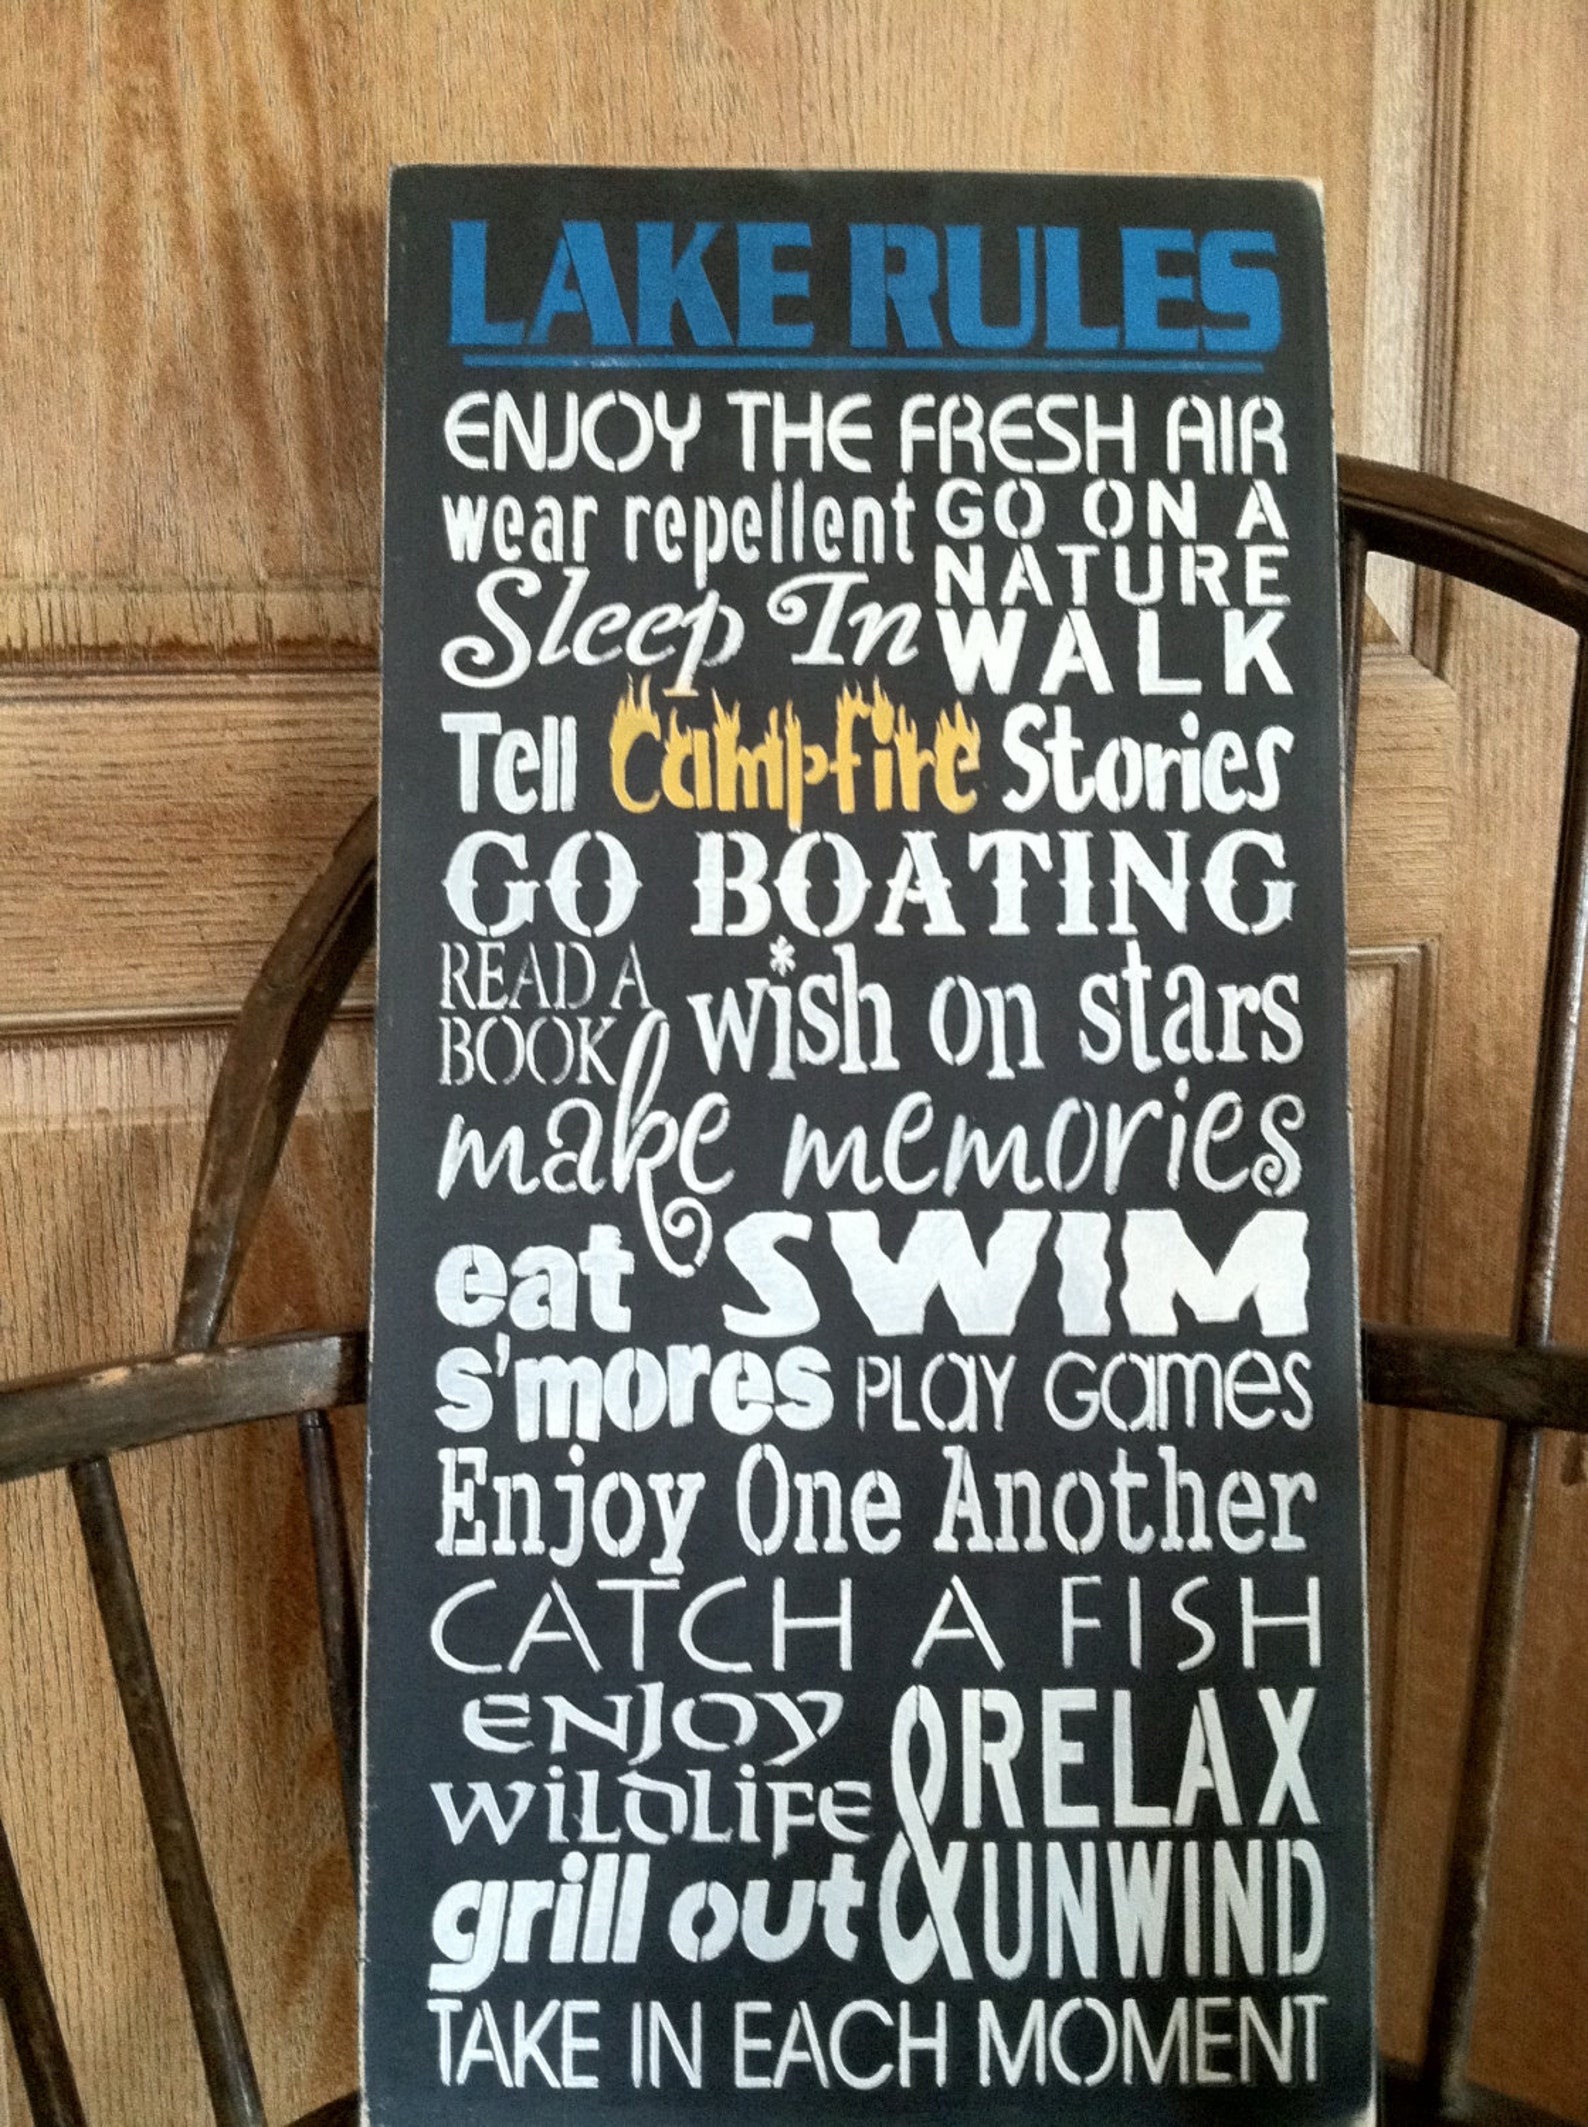 LAKE RULES
ENJOY THE FRESH AIR
wear repellent
GO ON A
NATURE
WALK
Sleep In
Tell Campfire Stories
GO BOATING
READ A
BOOK
wish on stars
make memories
eat
s'mores
SWIM
PLAY GAMES
Enjoy One Another
CATCH A FISH
ENJOY
WILDLIFE
RELAX
& UNWIND
grill out
TAKE IN EACH MOMENT